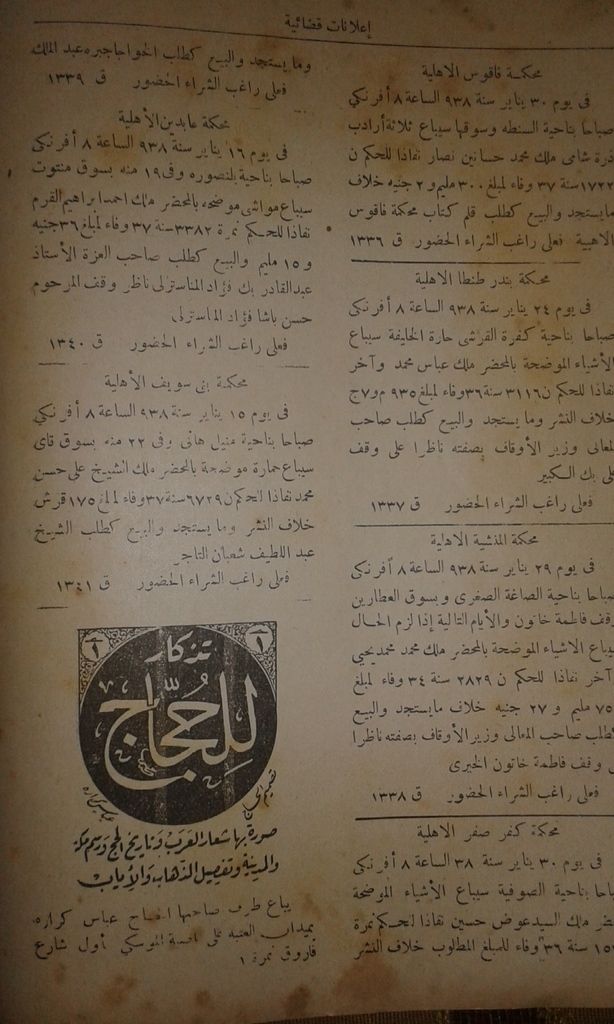 إعلانات قضائية
محكمة فاقوس الاهلية
فى يوم ٣٠ يناير سنة ٩٣٨ الساعة ٨ أفرنكي
صباحا بناحية السنطه وسوقها سيباع ثلاثة أرادب
ذرة شامى ملك محمد حسانين نصار نفاذا للحكم ن
١٧٢٢ سنة ٣٧ وفاء لمبلغ ٣٠٠ مليم و ٢ جنيه خلاف
مايستجد والبيع كطلب قلم كتاب محكمة فاقوس
الاهلية فعلى راغب الشراء الحضور ق ١٣٣٦
محكمة بندر طنطا الاهلية
فى يوم ٢٤ يناير سنة ٩٣٨ الساعة ٨ أفرنكى
صباحا بناحية كفرة القرشى حارة الخليفة سيباع
الأشياء الموضحة بالمحضر ملك عباس محمد وآخر
نفاذا للحكم ن ٣١١٦ سنة ٣٦ وفاء لمبلغ ٩٣٥ م و ٧ ج
خلاف النشر وما يستجد والبيع كطلب صاحب
المعالى وزير الأوقاف بصفته ناظرا على وقف
على بك الكبير
فعلى راغب الشراء الحضور ق ١٣٣٧
محكمة المنشية الاهلية
فى يوم ٢٩ يناير سنة ٩٣٨ الساعة ٨ أفرنكى
صباحا بناحية الصاغة الصغرى وبسوق العطارين
وقف فاطمة خاتون والأيام التالية إذا لزم الحال
سيباع الاشياء الموضحة بالمحضر ملك محمد محمد يحيي
وآخر نفاذا للحكم ن ٢٨٢٩ سنة ٣٤ وفاء لمبلغ
٧٥٠ مليم و ٢٧ جنيه خلاف مايستجد والبيع
كطلب صاحب المعالى وزير الأوقاف بصفته ناظرا
وقف فاطمة خاتون الخيرى
فعلى راغب الشراء الحضور ق ١٣٣٨
محكمة كفر صقر الاهلية
فى يوم ٣٠ يناير سنة ٩٣٨ الساعة ٨ أفرنكى
صباحا بناحية الصوفية سيباع الأشياء الموضحة
بالمحضر ملك السيد عوض حسين نفاذا للحكم نمرة
سنة ٣٦ وفاء للمبلغ المطلوب خلاف النشر
وما يستجد والبيع كطلب الخواجا جبره عبد الملك
فعلى راغب الشراء الحضور ق ١٣٣٩
محكمة عابدين الأهلية
فى يوم ١٦ يناير سنة ٩٣٨ الساعة ٨ أفرنكى
صباحا بناحية بلنصوره وفى ١٩ منه بسوق منتوت
سيباع مواشى موضحه بالمحضر ملك احمد ابراهيم القرم
نفاذا للحكم نمرة ٣٣٨٢ سنة ٣٧ وفاء لمبلغ ٣٦ جنيه
و ١٥ مليم والبيع كطلب صاحب العزة الأستاذ
عبد القادر بك فؤاد المناسترلى ناظر وقف المرحوم
حسن باشا فؤاد المناسترلى
فعلى راغب الشراء الحضور ق ١٣٤٠
محكمة بنى سويف الأهلية
فى يوم ١٥ يناير سنة ٩٣٨ الساعة ٨ أفرنكي
صباحا بناحية منيل هانى وفى ٢٢ منه بسوق قاى
سيباع حمارة موضحة بالمحضر ملك الشيخ على حسن
محمد نفاذا للحكم ن ٦٧٢٩ سنة ٣٧ وفاء لمبلغ ١٧٥ قرش
خلاف النشر وما يستجد والبيع كطلب الشيخ
عبد اللطيف شعبان التاجر
فعلى راغب الشراء الحضور ق ١٣٤١
تذكار
للحجاج
صورة بها شعار العرب وتاريخ الحج ورسم مكة
والمدينة وتفصيل الذهاب والأياب
يباع طرف صاحبها الحاج عباس كراره
بميدان العتبه على ناصية الموسكي أول شارع
فاروق نمرة ١